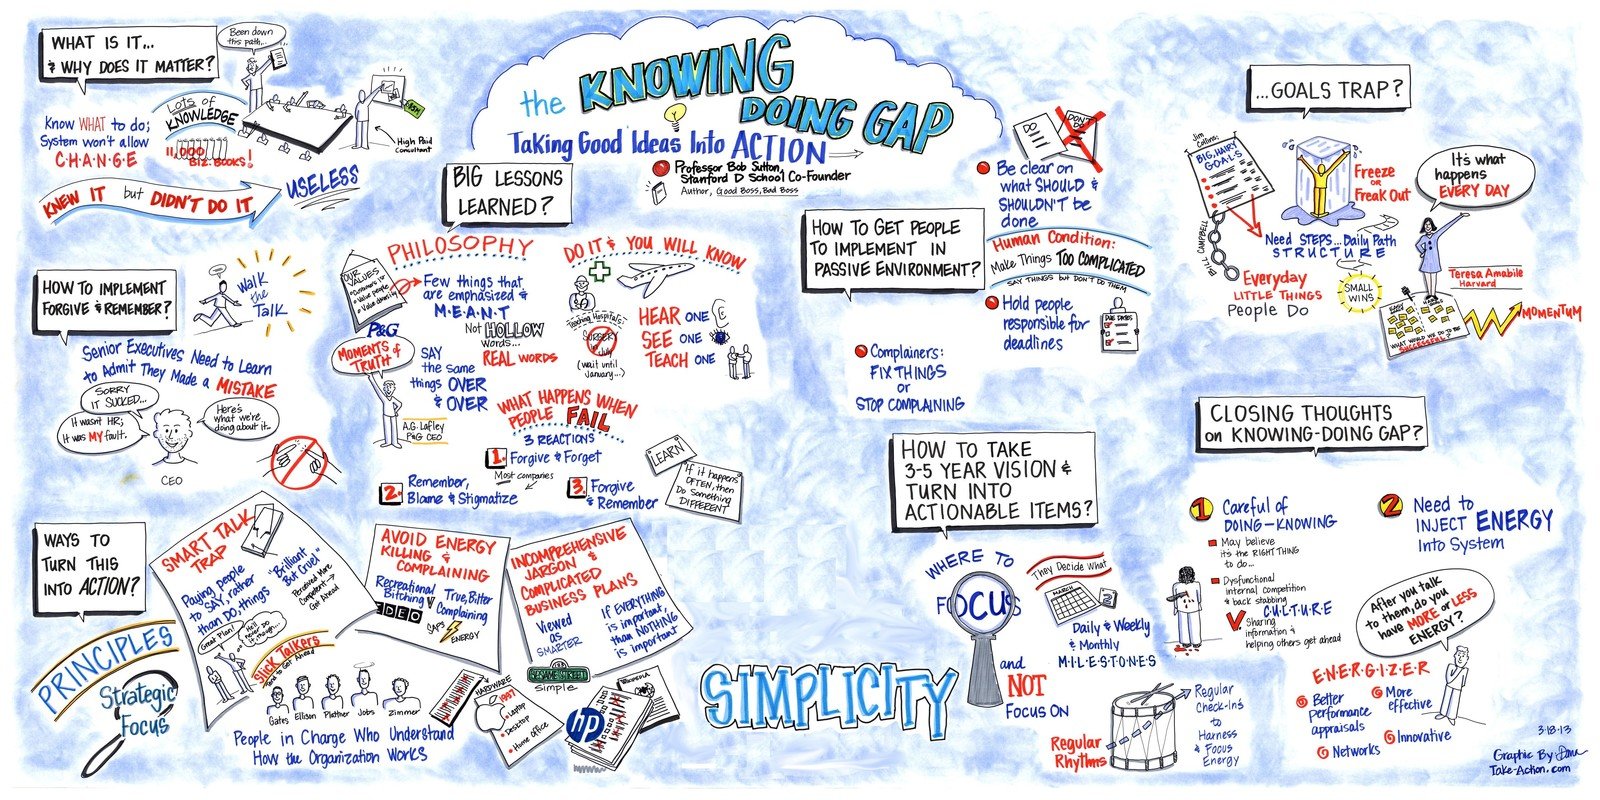 the KNOWING
DOING GAP
Taking Good Ideas Into ACTION
Professor Bob Sutton,
Stanford D School Co-Founder
Author, Good Boss, Bad Boss
WHAT IS IT...
& WHY DOES IT MATTER?
Been down
this path...
Know WHAT to do;
System won't allow
C·H·A·N·G·E
Lots of
KNOWLEDGE
11,000
BIZ. BOOKS!
High Paid
Consultant
KNEW IT but DIDN'T DO IT
USELESS
HOW TO IMPLEMENT
FORGIVE & REMEMBER?
Walk
the
Talk
Senior Executives Need to Learn
to Admit They Made a MISTAKE
SORRY
IT SUCKED...
It wasn't HR;
It was MY fault.
Here's
what we're
doing about it..
CEO
BIG LESSONS
LEARNED?
PHILOSOPHY
OUR
VALUES
• Customers
• Value people
Few things that
are emphasized &
M·E·A·N·T
Not HOLLOW
words...
REAL words
P&G
MOMENTS of
TRUTH
SAY
the same
things OVER
& OVER
A.G. Lafley
P&G CEO
DO IT & YOU WILL KNOW
Teaching Hospitals:
SURGERY
in July
(wait until
January...)
HEAR ONE
SEE ONE
TEACH ONE
WHAT HAPPENS WHEN
PEOPLE FAIL
3 REACTIONS
1. Forgive & Forget
Most companies
2. Remember,
Blame & Stigmatize
3. Forgive
& Remember
LEARN
If it happens
OFTEN, then
Do Something
DIFFERENT
WAYS TO
TURN THIS
INTO ACTION?
PRINCIPLES
Strategic
Focus
SMART TALK
TRAP
Paying people
to SAY, rather
than DO, things
"Brilliant
But Cruel"
Perceived More
Competent →
Get Ahead
Great Plan!
Slick Talkers
tend to Get Ahead
Gates Ellison Plattner Jobs Zimmer
People in Charge Who Understand
How the Organization Works
AVOID ENERGY
KILLING &
COMPLAINING
Recreational
Bitching
V
True, Bitter
Complaining
IDEO
SAPS
ENERGY
INCOMPREHENSIVE
JARGON &
COMPLICATED
BUSINESS PLANS
Viewed
as
SMARTER
If EVERYTHING
is important,
than NOTHING
is important
SESAME STREET
simple
HARDWARE
1997
• Laptop
• Desktop
• Home Office
hp
WIKIPEDIA
SIMPLICITY
HOW TO GET PEOPLE
TO IMPLEMENT IN
PASSIVE ENVIRONMENT?
DO
DON'T
Be clear on
what SHOULD &
SHOULDN'T be
done
Human Condition:
Make Things TOO COMPLICATED
SAY THINGS but DON'T DO THEM
Hold people
responsible for
deadlines
DUE DATES
Complainers:
FIX THINGS
or
STOP COMPLAINING
HOW TO TAKE
3-5 YEAR VISION &
TURN INTO
ACTIONABLE ITEMS?
WHERE TO
FOCUS
and
NOT
FOCUS ON
They Decide What
MARCH
Daily & Weekly
& Monthly
M·I·L·E·S·T·O·N·E·S
Regular
Rhythms
Regular
Check-Ins
to
Harness
& Focus
Energy
...GOALS TRAP?
Jim
Collins:
BIG, HAIRY
GOALS
BILL CAMPBELL
Freeze
OR
Freak Out
Need STEPS...Daily Path
STRUCTURE
Everyday
LITTLE THINGS
People Do
SMALL
WINS
It's what
happens
EVERY DAY
Teresa Amabile
Harvard
WHAT WOULD WE DO TO BE
SUCCESSFUL?
MOMENTUM
CLOSING THOUGHTS
on KNOWING-DOING GAP?
1 Careful of
DOING-KNOWING
May believe
it's the RIGHT THING
to do...
Dysfunctional
internal competition
& back stabbing
C·U·L·T·U·R·E
Sharing
information &
helping others get ahead
2 Need to
INJECT ENERGY
Into System
After you talk
to them, do you
have MORE or LESS
ENERGY?
E·N·E·R·G·I·Z·E·R
Better
performance
appraisals
More
effective
Networks
Innovative
3·18·13
Graphic By
Take-Action.com